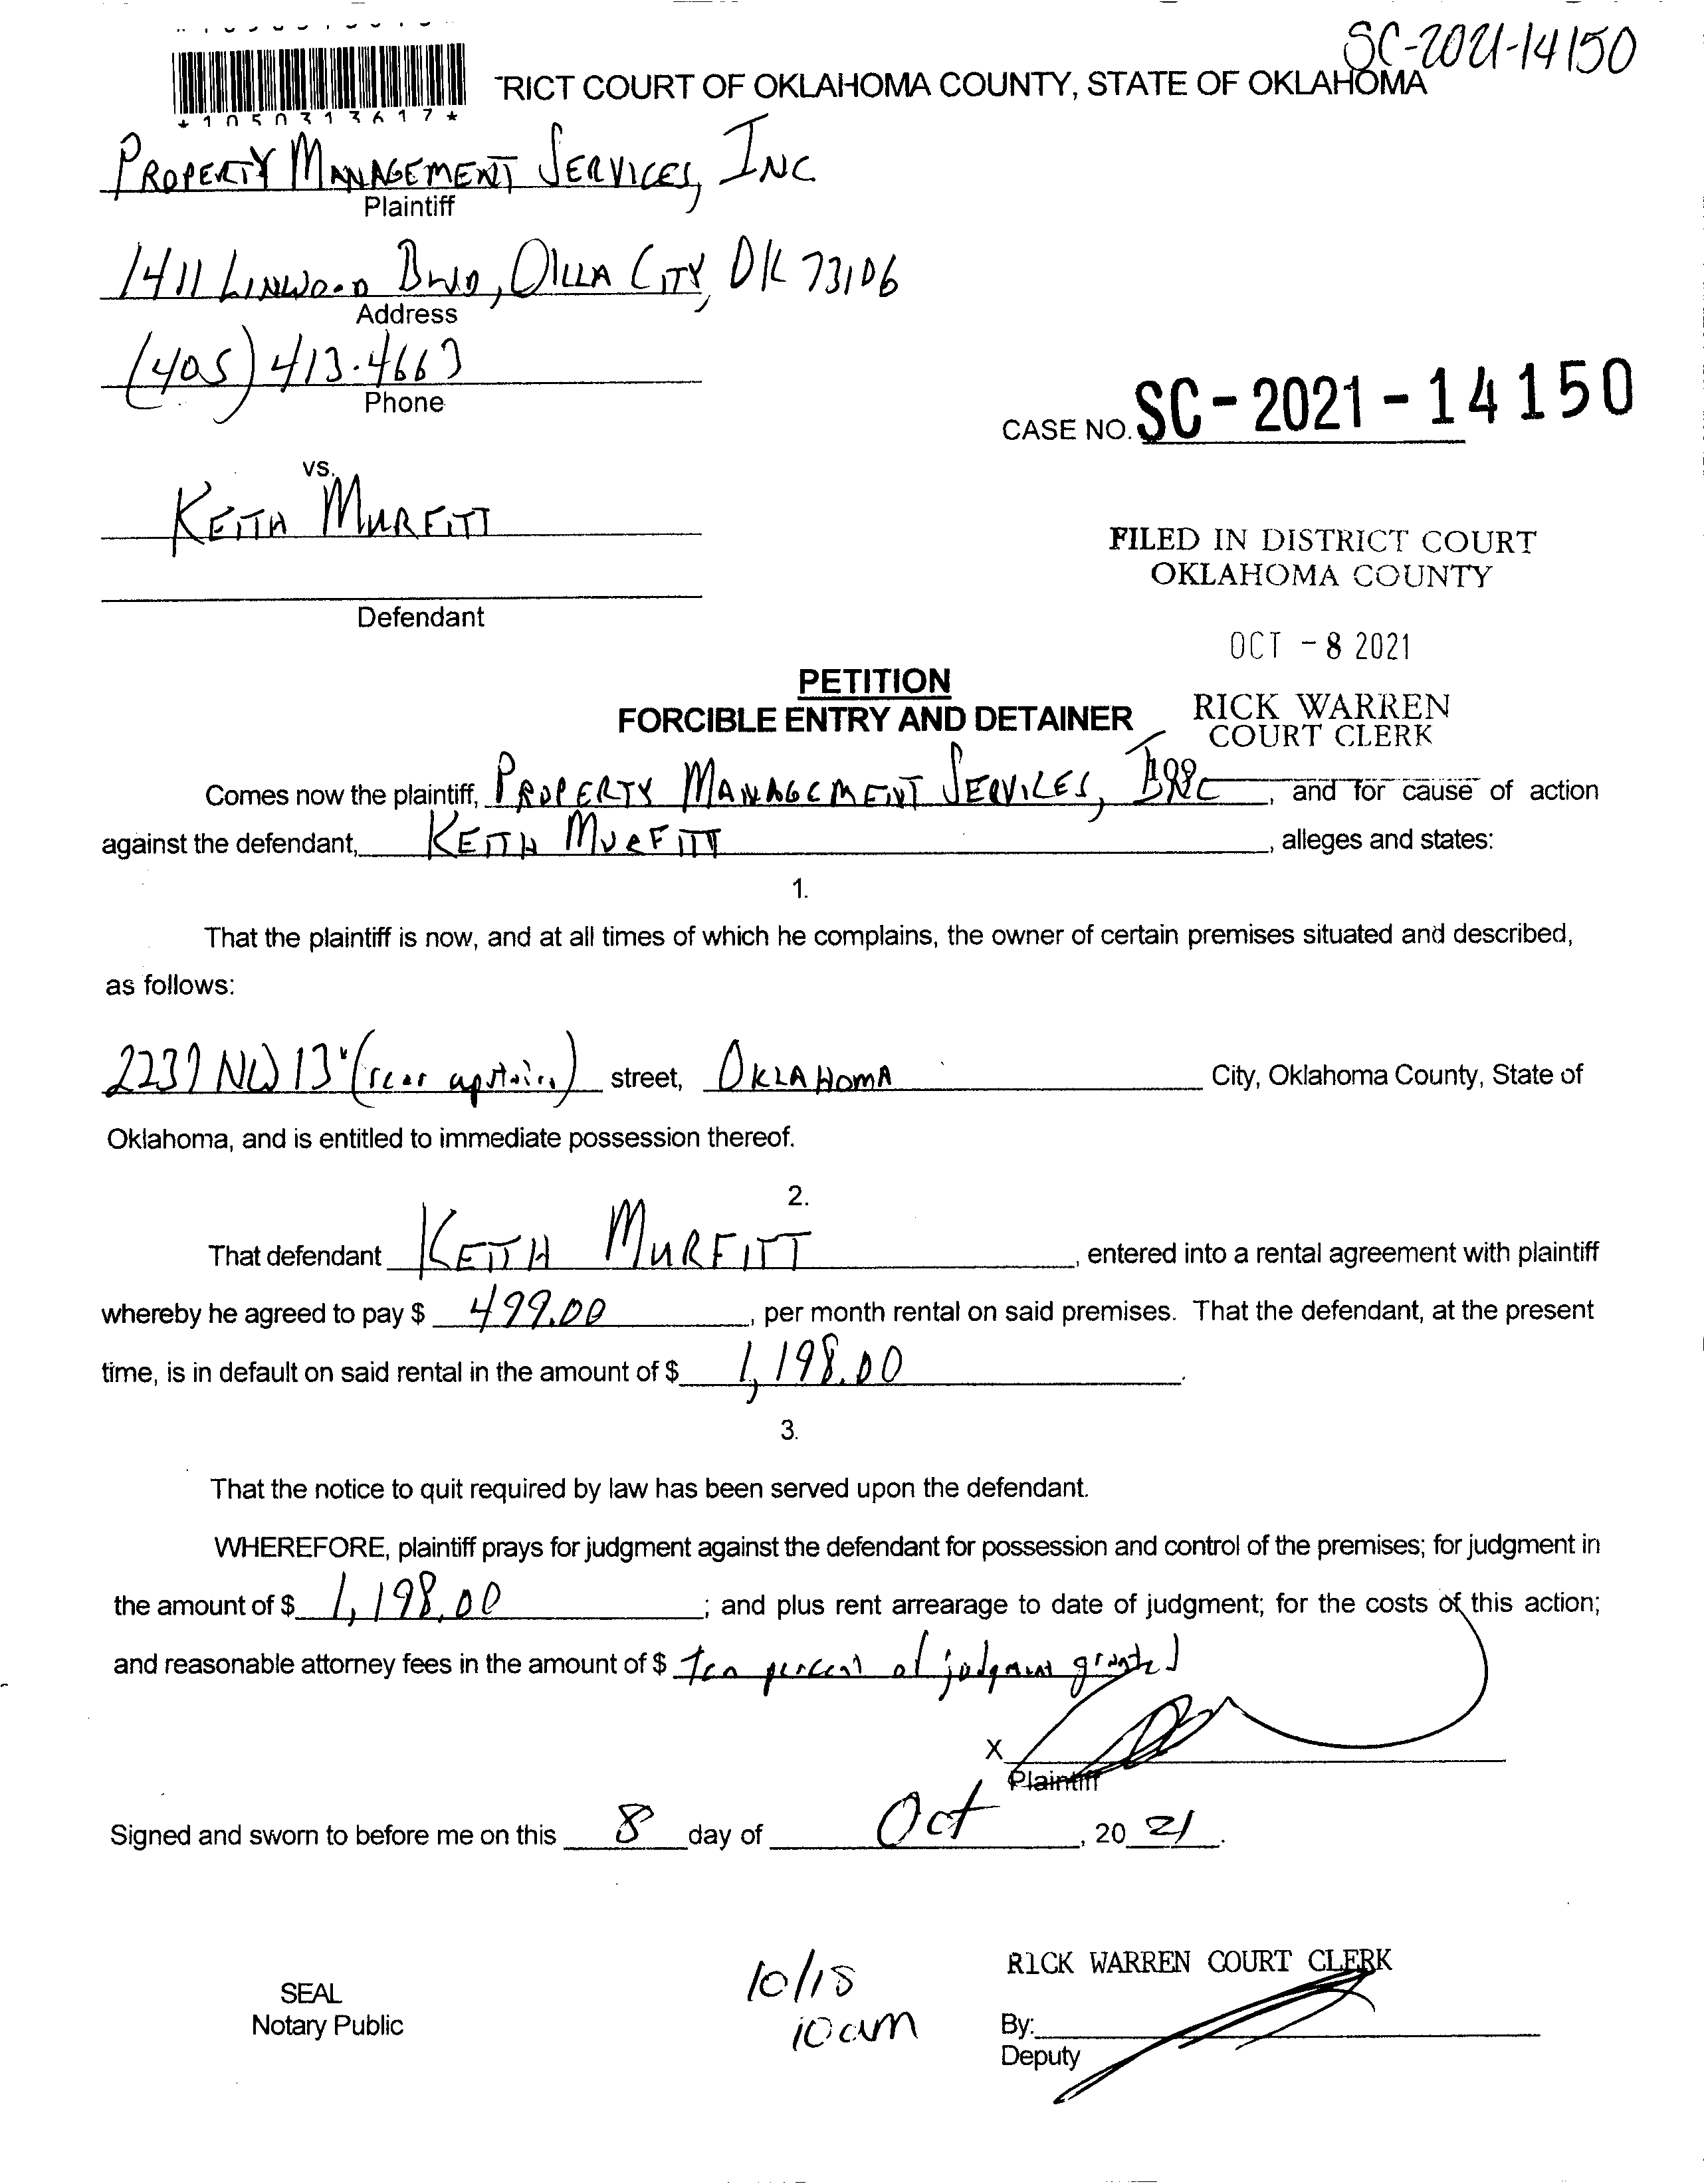 SC-2021-14150
*1050313617*
RICT COURT OF OKLAHOMA COUNTY, STATE OF OKLAHOMA
PROPERTY MANAGEMENT SERVICES, INC
Plaintiff
1411 LINWOOD BLVD, OKLA CITY, OK 73106
Address
(405) 413-4663
Phone
CASE NO. SC-2021-14150
vs.
KEITH MURFITT
Defendant
FILED IN DISTRICT COURT
OKLAHOMA COUNTY
OCT -8 2021
RICK WARREN
COURT CLERK
PETITION
FORCIBLE ENTRY AND DETAINER
Comes now the plaintiff, PROPERTY MANAGEMENT SERVICES, INC, and for cause of action
against the defendant, KEITH MURFITT, alleges and states:
1.
That the plaintiff is now, and at all times of which he complains, the owner of certain premises situated and described,
as follows:
NW 13 (rear upstairs) street, OKLAHOMA City, Oklahoma County, State of
Oklahoma, and is entitled to immediate possession thereof.
2.
That defendant KEITH MURFITT, entered into a rental agreement with plaintiff
whereby he agreed to pay $ 499.00, per month rental on said premises. That the defendant, at the present
time, is in default on said rental in the amount of $ 1,198.00.
3.
That the notice to quit required by law has been served upon the defendant.
WHEREFORE, plaintiff prays for judgment against the defendant for possession and control of the premises; for judgment in
the amount of $ 1,198.00; and plus rent arrearage to date of judgment; for the costs of this action;
and reasonable attorney fees in the amount of $ ten percent of judgment granted
X
Plaintiff
Signed and sworn to before me on this 8 day of Oct, 20 21.
SEAL
Notary Public
10/18
10am
RICK WARREN COURT CLERK
By:
Deputy